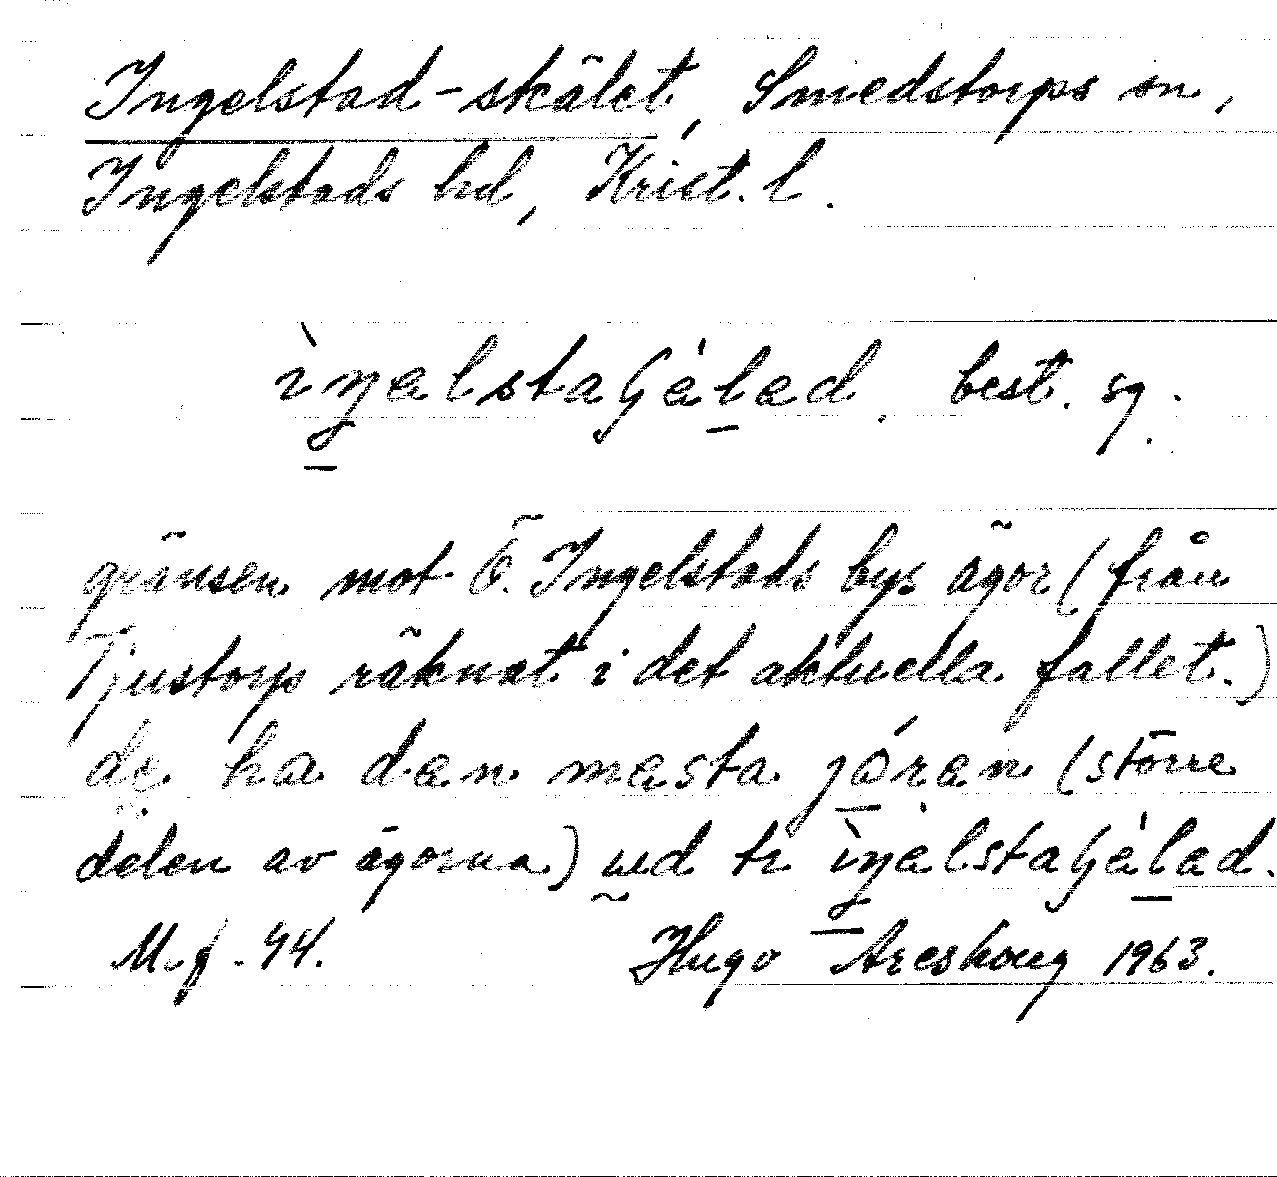 Ingelstad-skälet, Smedstorps sn,
Ingelstads hd, Krist. l.
ìŋəlstaʃɛ́ləd. best. sg.
gränsen mot Ö. Ingelstads bys ägor (från
Tjustorps räknat i det aktuella fallet.)
de ha dan mesta jóran (större
delen av ägorna) ud te ìŋəlstaʃɛ́ləd.
M. f. 44. Hugo Areskoug 1963.